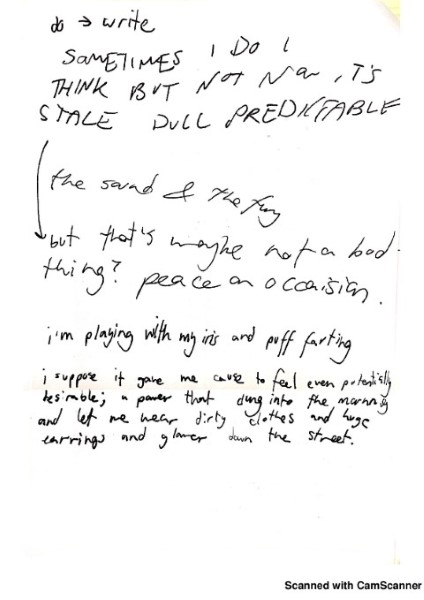 do → write
SOMETIMES I DO I
THINK BUT NOT NOW, IT'S
STALE DULL PREDICTABLE
the sound & the fury
but that's maybe not a bad
thing? peace on occaision.
i'm playing with my iris and puff farting
i suppose it gave me cause to feel even potentially
desirable; a power that clung into the morning
and let me wear dirty clothes and huge
earrings and glower down the street.
Scanned with CamScanner